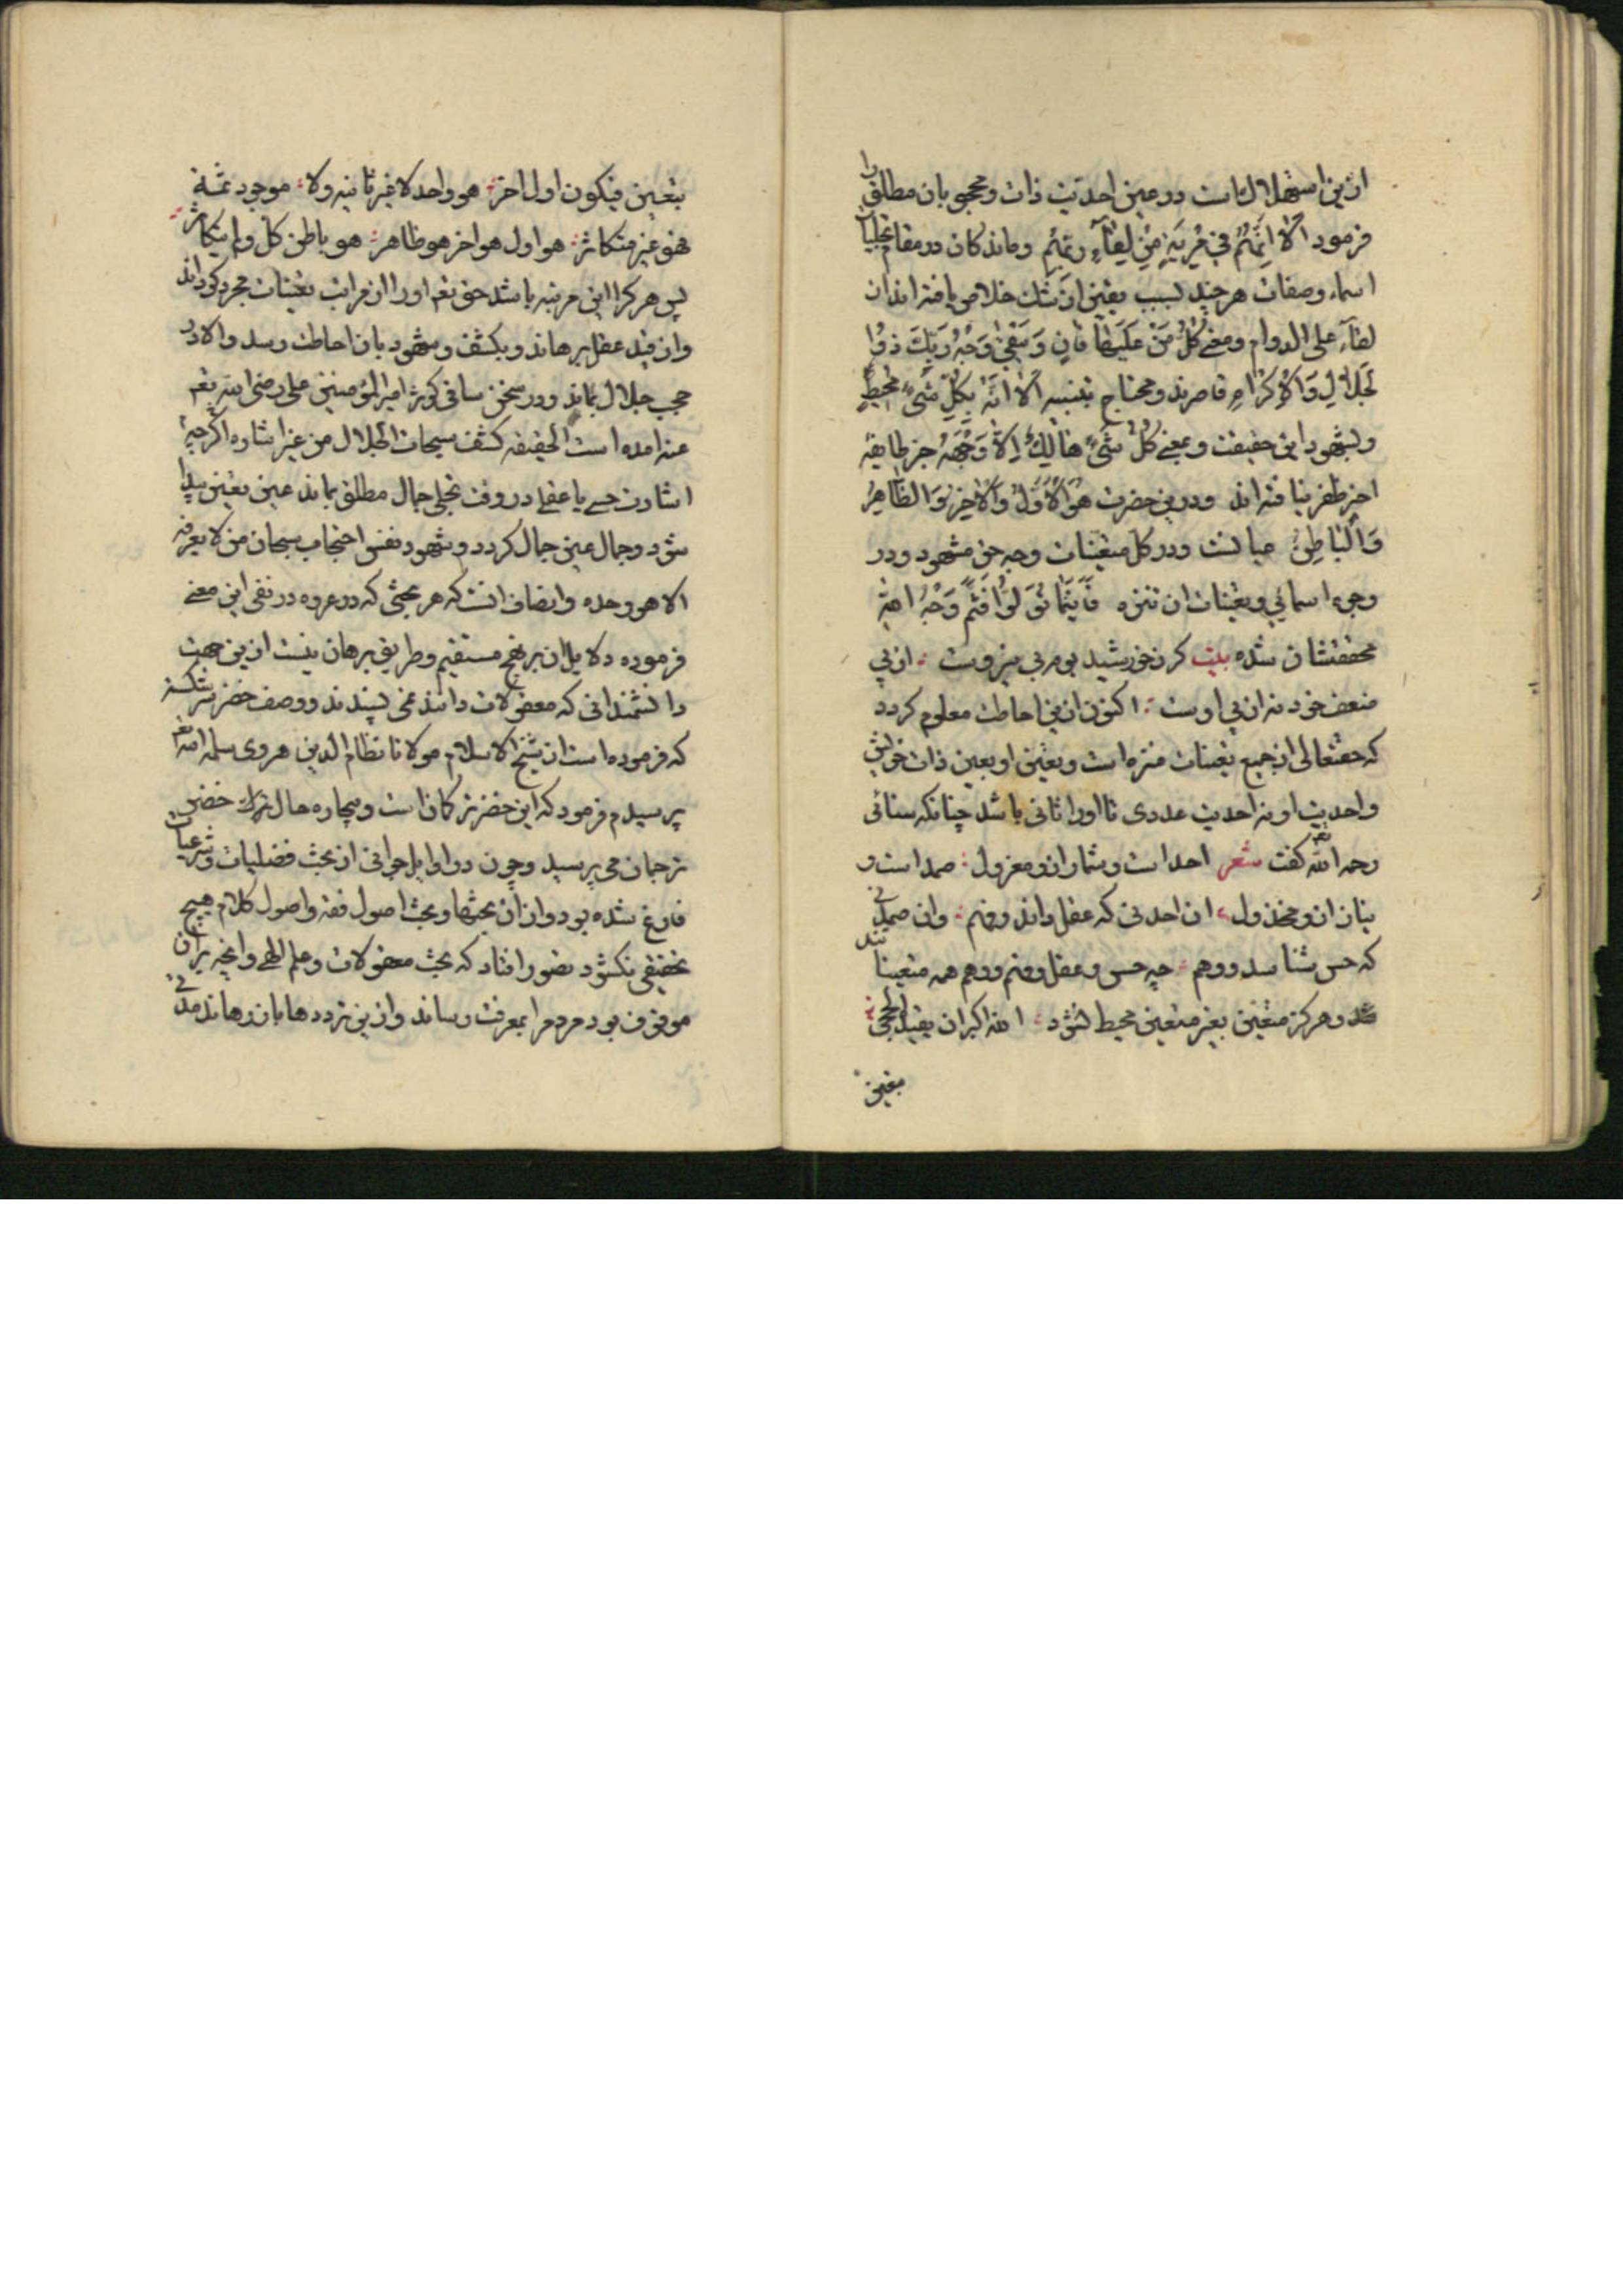 ازین استهلال است در عین احدیت ذات و محجوبان مطلق را
فرمود اَلَا اِنَّهُمْ فِي مِرْيَةٍ مِنْ لِقَآءِ رَبِّهِمْ و ماندکان در مقام تجلیات
اسماء و صفات هر چند بسبب یقین از شک خلاص یافته اند از
لقآء علی الدوام و معنی كُلُّ مَنْ عَلَيْهَا فَانٍ وَ يَبْقٰى وَجْهُ رَبِّكَ ذُوا
لْجَلَالِ وَالْاِكْرَامِ قاصرند و محتاج بتنبیه اَلَا اِنَّهُ بِكُلِّ شَيْءٍ مُحِيطٌ
و بشهود این حقیقت و بمعنی كُلُّ شَيْءٍ هَالِكٌ اِلَّا وَجْهَهُ جز طایفه
اخر ظفر نیافته اند و درین حضرت هُوَ الْاَوَّلُ وَالْاٰخِرُ وَالظَّاهِرُ
وَالْبَاطِنُ عیانست و در کل متعینات وجه حق مشهود و در
وجوه اسمائی و تعینات آن تنزه فَاَيْنَمَا تُوَلُّوا فَثَمَّ وَجْهُ اللّٰهِ
محققشان شده بیت کر ز خورشید بوم بی نیروست : از پی
ضعف خود نه از پی اوست : اکنون ازین احاطت معلوم کردد
که حقتعالی از جمیع تعینات منزه است و تعین او بعین ذات خویش
و احدیت او نه احدیت عددی تا او را ثانی باشد چنانکه سنائی
رحمه الله تعم کفت شعر احد است و شمار ازو معزول : صمد است و
نیاز ازو مخذول : آن احد نی که عقل داند و فهم : وان صمد نی
که حس شناسد و وهم : چه حس و عقل و فهم و وهم همه متعینا تند
و هرکز متعین بغیر متعین محیط نشود : الله اکبر ان یقیده الحجی :
بتعین
بتعین فیکون اول اخر : هو واحد لا غیر ثانیه ولا : موجود ثمة
فهو غیر متکاثر : هو اول هو اخر هو ظاهر : هو باطن کل و لم یتکاثر
پس هر کرا این مرتبه باشد حق تعم او را از مراتب تعینات مجرد کرداند
و از قید عقل برهاند و بکشف و شهود بان احاطت رسد و الا در
حجب جلال بماند و در سخن ساقی کوثر امیر المؤمنین علی رضی الله تعم
عنه امده است الحقیقه کشف سبحات الجلال من غیر اشاره اکرچه
اشارت حسی یا عقلی در وقت تجلی جمال مطلق بماند عین تعین پیدا
شود و جمال عین جلال کردد و شهود نفس احتجاب سبحان من لا یعرفه
الا هو وحده و انصاف آنست که هر بحثی که در عروه در نفی این معنی
فرموده دلایل ان بر نهج مستقیم و طریق برهان نیست ازین جهت
دانشمندانی که معقولات دانند نمی پسندند و وصف خضر ترکستنه
که فرموده است از شیخ الاسلام مولانا نظام الدین هروی سلمه الله تعم
پرسیدم فرمود که این خضر ترکمان است و بیچاره حال ترک خضر
ترجمان می پرسید و چون در اوایل جوانی از بحث فضلیات و شرعیات
فارغ شده بود و ازان بحثها و بحث اصول فقه و اصول کلام هیچ
تحقیقی نکشود تصور افتاد که بحث معقولات و علم الهی و انچه بران
موقوف بود مردم را بمعرفت رساند و ازین ترددها باز رهاند مدتی